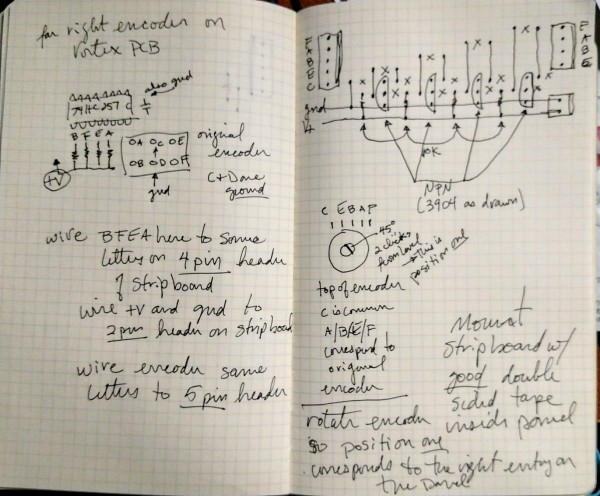 far right encoder on
Vortex PCB
also gnd
74HC257
B F E A
OA OC OE
OB OD OF
+V
gnd
original
encoder
C + D are
ground
wire BFEA here to same
letters on 4 pin header
of stripboard
wire +V and gnd to
2 pin header on stripboard
wire encoder same
letters to 5 pin header
F
A
B
E
C
F
A
B
E
x x x x
x x x x
x x x x
gnd
V+
10K
NPN
(3904 as drawn)
C E B A F
45°
2 clicks
from level
→ this is
position one
top of encoder
C is common
A/B/E/F
correspond to
original
encoder
Mount
stripboard w/
good double
sided tape
inside panel
rotate encoder
so position one
corresponds to the right entry on
the panel